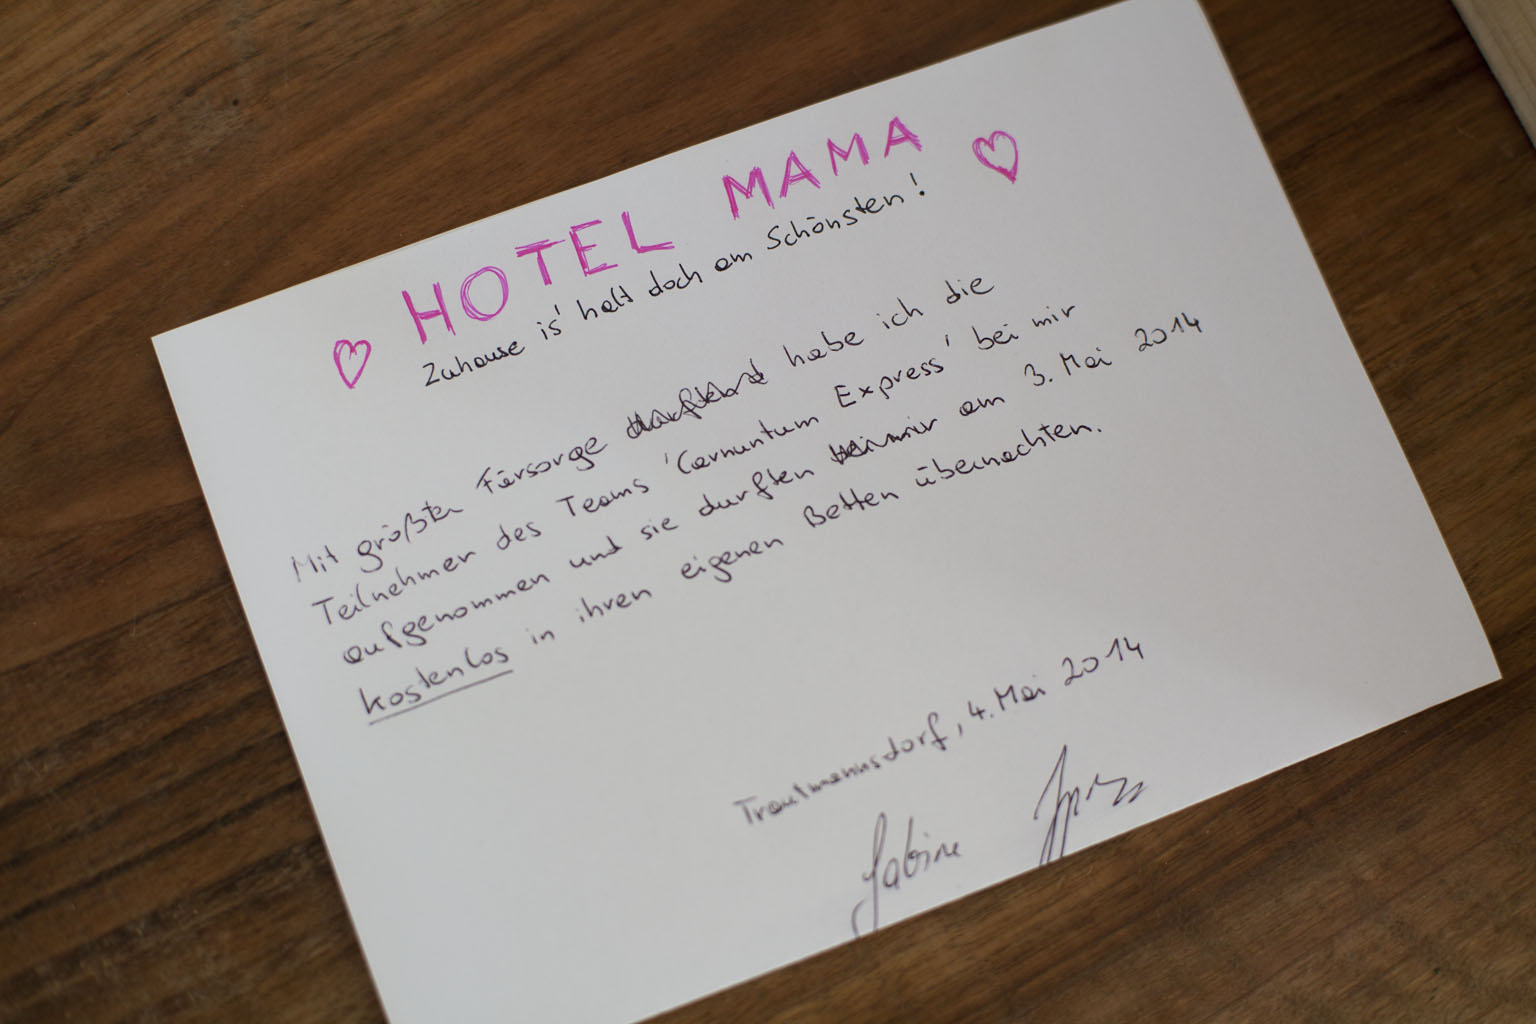 HOTEL MAMA
Zuhause is' halt doch am Schönsten!
Mit größter Fürsorge habe ich die
Teilnehmer des Teams 'Carnuntum Express' bei mir
aufgenommen und sie durften am 3. Mai 2014
kostenlos in ihren eigenen Betten übernachten.
Trautmannsdorf, 4. Mai 2014
Sabine